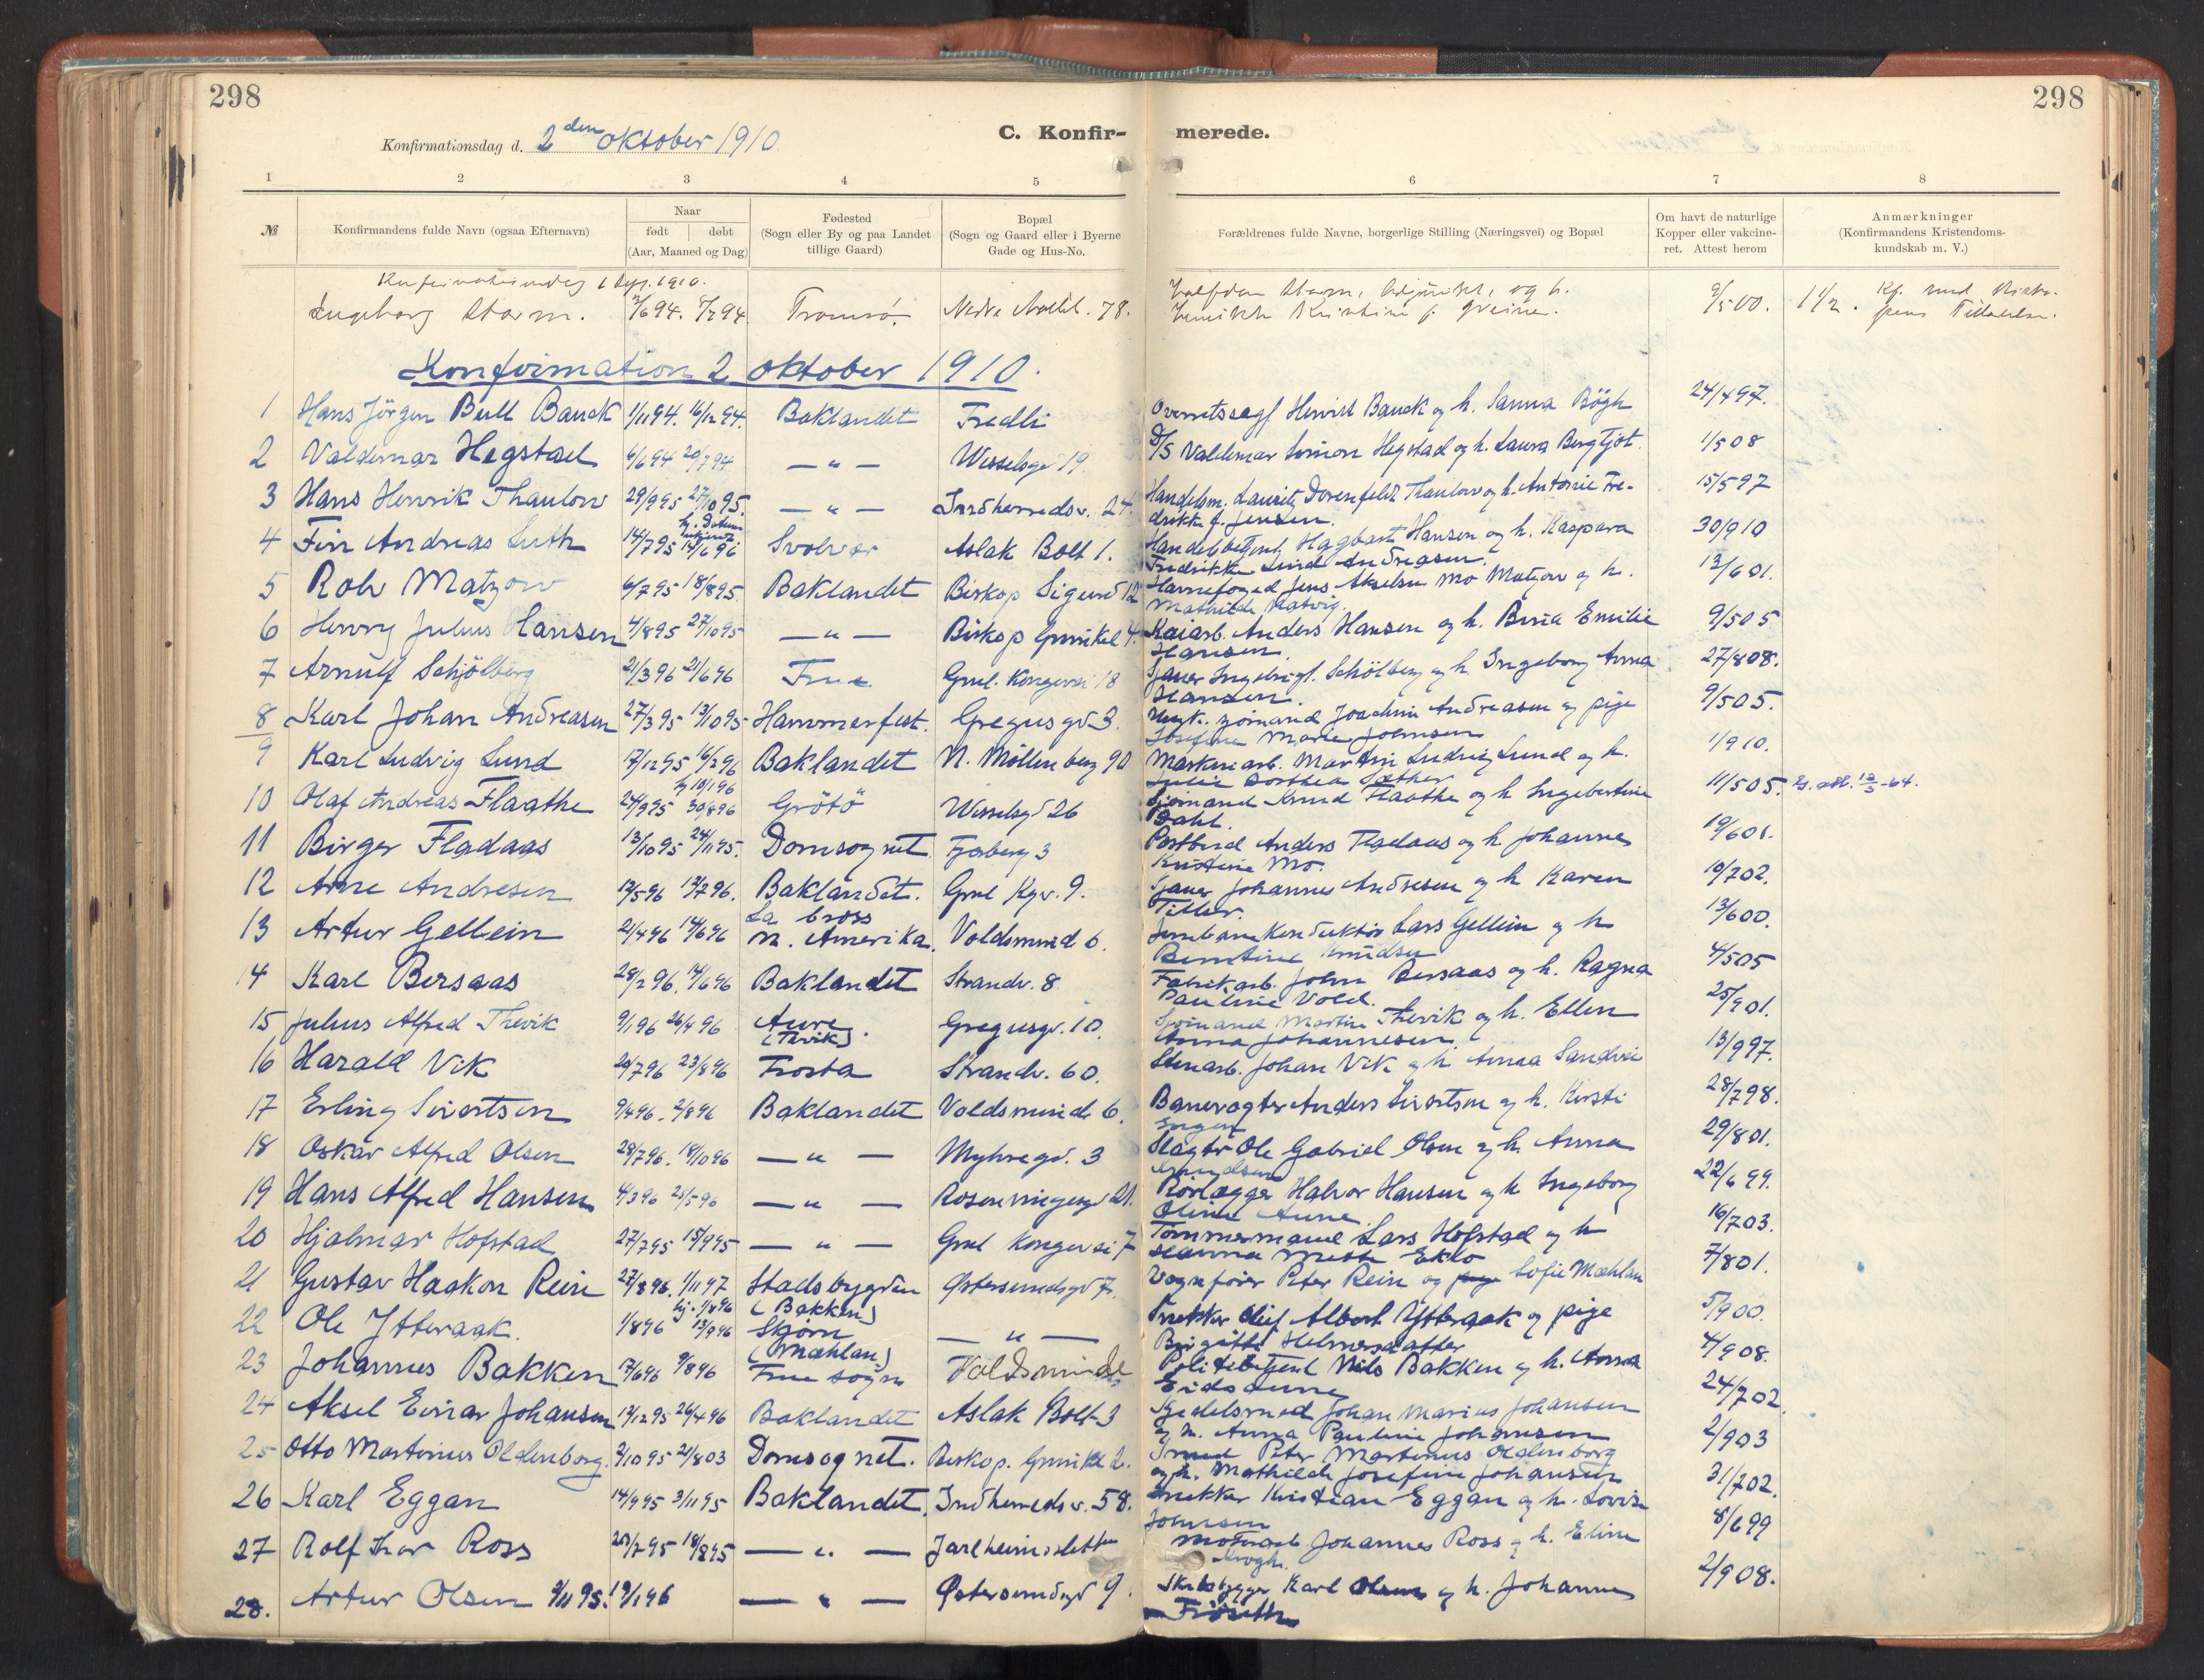 298
298
Konfirmationsdag d. 2den oktober 1910
C. Konfir- merede.
1 2 3 4 5 6 7 8
№ Konfirmandens fulde Navn (ogsaa Efternavn) Naar født døbt (Aar, Maaned og Dag) Fødested (Sogn eller By og paa Landet tillige Gaard) Bopæl (Sogn og Gaard eller i Byerne Gade og Hus-No. Forældrenes fulde Navne, borgerlige Stilling (Næringsvei) og Bopæl Om havt de naturlige Kopper eller vakcineret. Attest herom Anmærkninger (Konfirmandens Kristendomskundskab m. V.)
1910.
Ingeborg Storm. 7/7 94. Tromsø. 78. 9/5 00. 1 1/2.
Konfirmation 2 oktober 1910.
1 Hans Jörgen Bull Bauck 1/11 94. 16/12 94. Baklandet Fredli Bauck og h. Sanna Bögh 24/4 97.
2 Valdemar Hegstad 6/6 94 20/7 94 — " — Wesselsgd 19. D/S Valdemar Simon Hegstad og h. Laura Bergljot. 1/5 08
3 Hans Henrik Thaulow 29/9 95 27/10 95. — " — Indherredsv. 24. Handelsm. Lauritz Dorenfeldt Thaulow og h. Antonie Fredrikke f. Jensen. 15/5 97
4 Fin Andreas Luth 14/7 95 14/6 96 Svolvær Aslak Bolt 1. Handelsbetjent Hagbart Hansen og h. Kaspara Fredrikke Lund Andreasen. 30/9 10
5 Rolv Matzow 6/7 95 18/8 95. Baklandet Biskop Sigurd 12 Havnefoged Jens Akselsen Mo Matzow og h. Mathilde 13/6 01.
6 Henry Julius Hansen 4/8 95 27/10 95 — " — Biskop Grimkel 4. Kaiarb. Anders Hansen og h. Emilie Hansen. 9/5 05
7 Arnulf Schjölberg 21/3 96 21/6 96 Frue Gml. Kongevei 18 Schölberg og h Ingeborg Anna Hansen. 27/8 08.
8 Karl Johan Andreasen 27/3 95 13/10 95 Hammerfest. Gregusgd 3. Joachim Andreasen og pige Josefine Marie Johnsen 9/5 05.
9 Karl Ludvig Lund 17/12 95 16/2 96 Baklandet N. Möllenberg 90 Maskinarb. Martin Ludvig Lund og h. Julie Dorthea Sæther 1/9 10.
10 Olaf Andreas Flaathe 24/9 95 30/8 96 Grötö Wesselsgd 26 Sjömand Knud Flaathe og h Ingebertine Dahl. 11/5 05. 12/5 -64.
11 Birger Fladaas 13/10 95 24/11 95. Domsognet Fjosberg 3 Postbud Anders Fladaas og h. Johanne Kristine Mo. 19/6 01.
12 Arne Andresen 12/5 96 12/7 96. Baklandet. Gml Kgv. 9. Sjauer Johannes Andresen og h Karen Tiller. 10/7 02.
13 Artur Gellein 21/4 96 14/6 96 La Cross N. Amerika. Voldsmind 6. Jernbanekonduktör Lars Gellein og h Knudsen 13/6 00.
14 Karl Bersaas 28/2 96. 14/6 96 Baklandet Strandv. 8 Fabrikarb. John Bersaas og h. Ragna Pauline Vold. 4/5 05
15 Julius Alfred Thevik 9/1 96 26/4 96 Aure. (Tevik) Gregusgd. 10. Sjömand Martin Thevik og h. Ellen Anna Johannesen. 25/9 01.
16 Harald Vik 20/7 96 23/8 96 Frosta Strandv. 60. Stenarb. Johan Vik og h Anna 13/9 97.
17 Erling Sivertsen 9/4 96. 2/8 96 Baklandet Voldsminde 6. Banevogter Anders Sivertsen og h. Kirsti 28/7 98.
18 Oskar Alfred Olsen 28/7 96. 18/10 96 — " — Myhregd. 3 Slagter Ole Gabriel Olsen og h. Anna 29/8 01.
19 Hans Alfred Hansen 4/3 96 25/5 96 — " — Rosenvingesgd 21. Rörlægger Halvor Hansen og h Ingeborg Oline Aune. 22/6 99.
20 Hjalmar Hofstad 27/7 95 15/9 95 — " — Gml Kongevei 7 Tömmermand Lars Hofstad og h Hanna Ekle 16/7 03.
21 Gustav Haakon Rein 27/8 96. 1/11 97 Stadsbygden (Bakken) Østersundsgd 7. Vognfører Peter Rein og Sofie Mæhlan 7/8 01.
22 Ole Ytteraak. 1/8 96 13/9 96 Skjörn (Mæhlan) — " — Snekker Oluf Albert Ytteraak og pige Birgitte Helmersdatter 5/9 00.
23 Johannes Bakken 17/6 96 9/8 96 Frue sogn Voldsminde Politibetjent Nils Bakken og h. Anna Eidsaune 4/9 08.
24 Aksel Einar Johansen 12/12 95 26/4 96 Baklandet Aslak Bolt 3 Gjødelsmed Johan Marius Johansen og h. Anna Pauline Johansen 24/7 02.
25 Otto Martinus Oldenborg. 2/10 95 21/8 03 Domsognet. Biskop. Grimkel 2. Smed Peter Martinus Oldenborg og h. Mathilde Josefine Johansen 2/9 03
26 Karl Eggan 14/9 95 3/11 95 Baklandet. Indherredsv. 58. Snekker Kristian Eggan og h. Lovise Johnsen 31/7 02.
27 Rolf Ivar Ross 20/7 95 18/8 95 — " — Jarlheimsletten Johannes Ross og h. Eline Krogh. 8/6 99
28. Artur Olsen 3/11 95. 19/1 96 — " — Østersundsgd 9. Skibsbygger Karl Olsen og h. Johanne Fröseth 2/9 08.